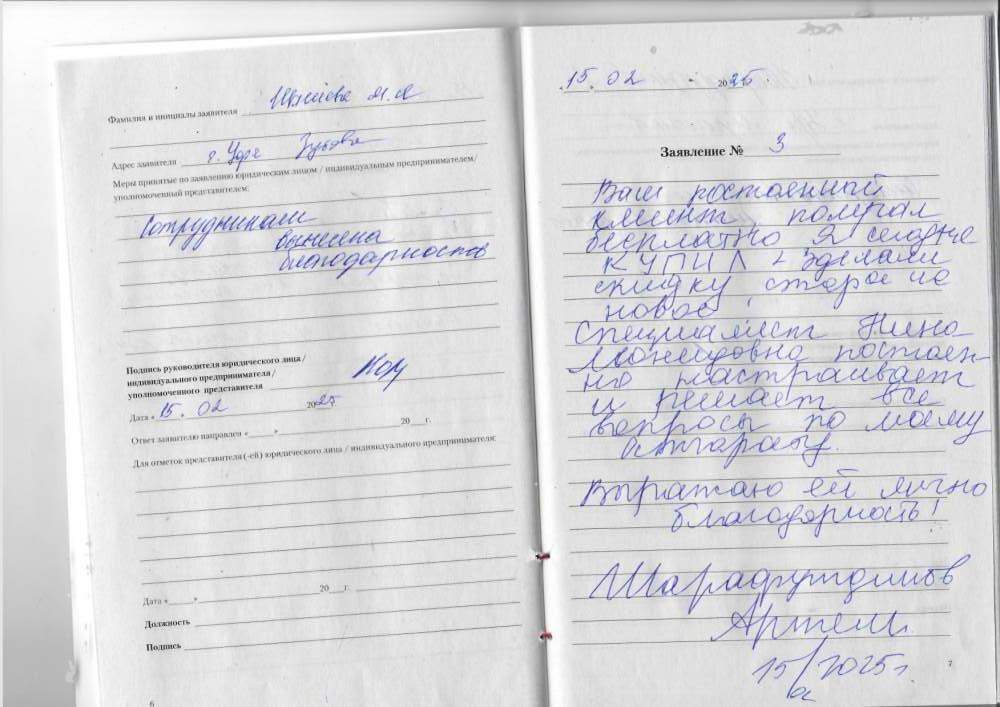 Фамилия и инициалы заявителя
Адрес заявителя г. Уфа Зубова
Меры принятые по заявлению юридическим лицом / индивидуальным предпринимателем/
уполномоченный представителем:
Сотрудникам
вынесена
благодарность
Подпись руководителя юридического лица /
индивидуального предпринимателя /
уполномоченного представителя
Дата « 15. 02 2025 г.
Ответ заявителю направлен «____» 20 ___ г.
Для отметок представителя (-ей) юридического лица / индивидуального предпринимателя:
Дата «____» 20 ___ г.
Должность
Подпись
6
15. 02 2025
Заявление № 3
Ваш постоянный
клиент, получал
бесплатно, я сегодне
КУПИЛ + зделали
скидку, старое на
новое
Специалист Нина
постоян-
но настраивает
и решает все
вопросы по моему
аппарату.
Выражаю ей лично
благодарность!
Шарафутдинов
Артем.
15/02 2025г.
7